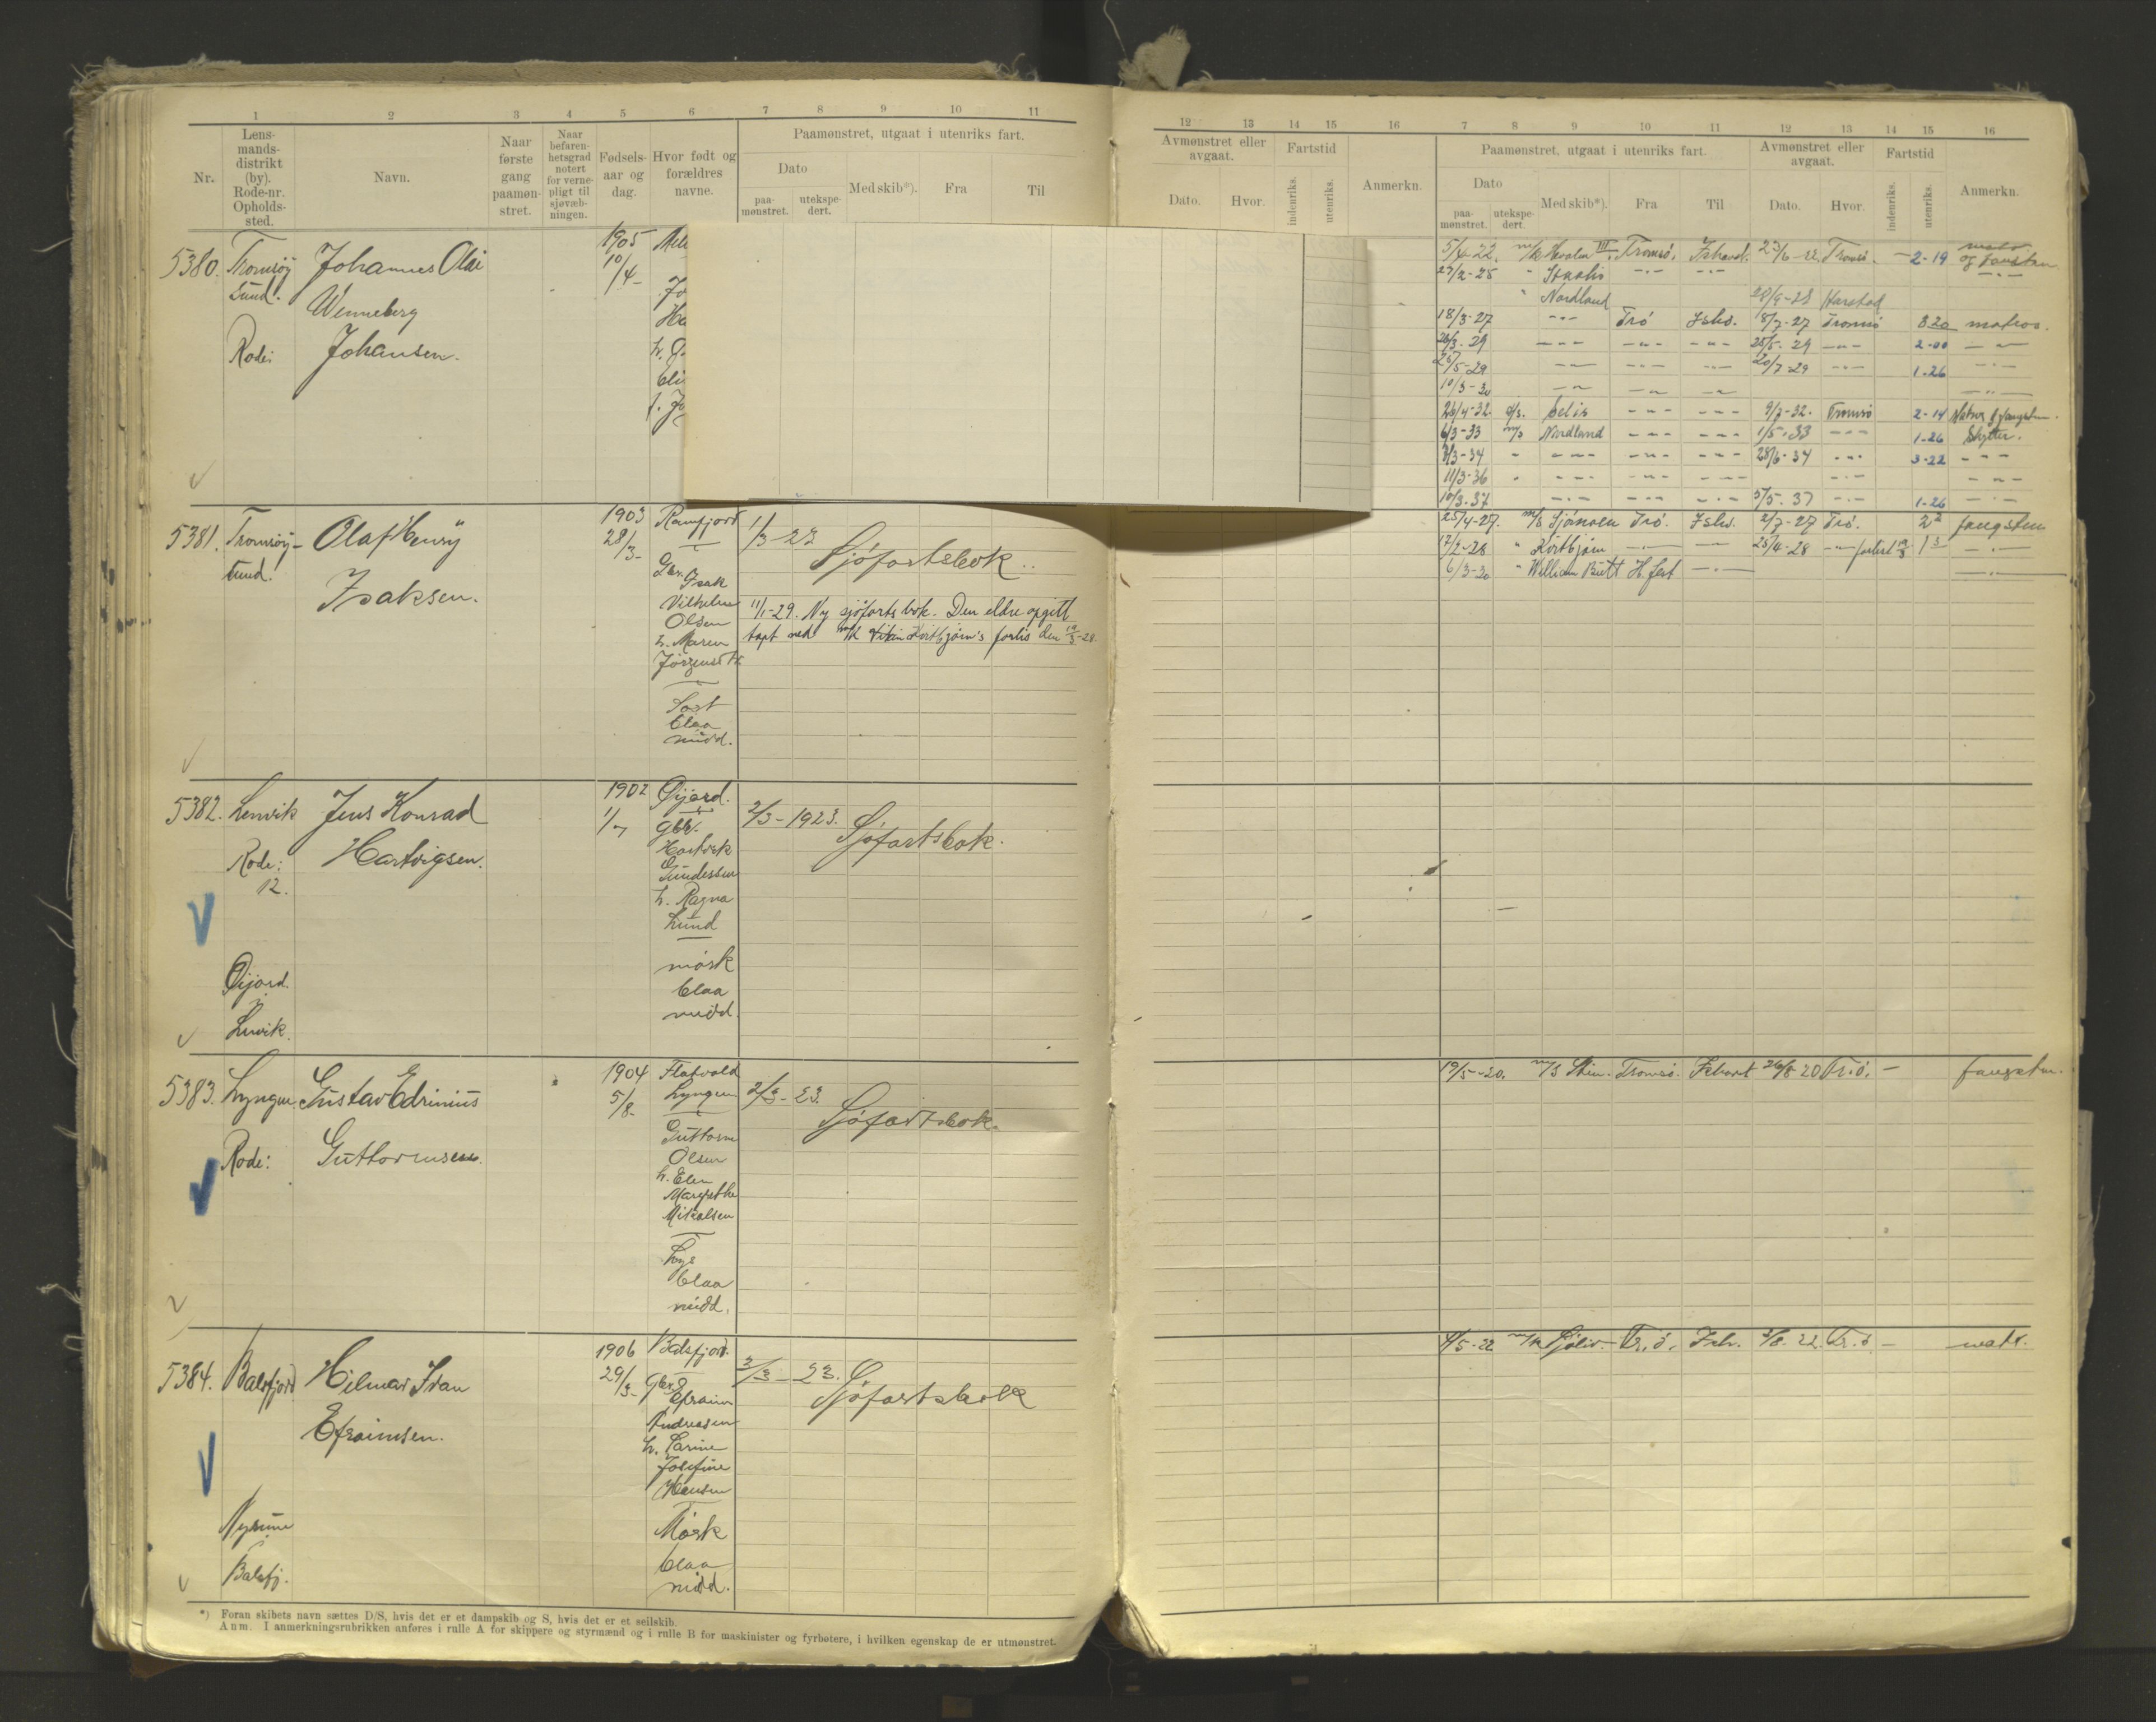 1 2 3 4 5 6 7 8 9 10 11
Nr.
Lens-
mands-
distrikt
(by).
Rode-nr.
Opholds-
sted.
Navn.
Naar
første
gang
paamøn-
stret.
Naar
befaren-
hetsgrad
notert
for verne-
pligt til
sjøvæb-
ningen.
Fødsels-
aar og
dag.
Hvor født og
forældres
navne.
Paamønstret, utgaat i utenriks fart.
Dato
paa-
mønstret.
utekspe-
dert.
Med skib*).
Fra
Til
5380.
Tromsøy
sund.
Rode:
Johannes Olai
Wenneberg
Johansen.
1905
10/4-
5381.
Tromsöy-
sund.
Olaf Henry
Isaksen.
1903
28/3-
Ramfjord
Gbr. Isak
Vilhelm
Olsen
h. Maren
Sort
blaa
midd.
1/3-23
Sjöfartsbok.
11/1-29. Ny sjöfartsbok. Den eldre opgitt
tapt ved m/k Kvitbjørn's forlis den 19/3-28.
5382.
Lenvik
Rode:
12.
Gijord.
Lenvik.
Jens Konrad
Hartvigsen.
1902
1/7
Gijord.
Gbr.
Hartvik
Gundersen
h. Ragna
Lund
mørk
blaa
midd.
2/3-1923.
Sjøfartsbok.
5383.
Lyngen
Rode:
Gustav Edrinius
Guttormsen.
1904
5/8-
Flatvold
Lyngen
Guttorm
Olsen
h. Elen
Margrethe
Mikalsen
Lys
blaa
midd.
2/3-23.
Sjøfartsbok.
5384.
Balsfjord
Balsfj.
Hilmar Ivan
Efraimsen.
1906
29/3-
Balsfjord.
Gbr.
Efraim
Andreasen
h. Karine
Josefine
Hansen
Mørk
blaa
midd.
2/3-23.
Sjøfartsbok
*) Foran skibets navn sættes D/S, hvis det er et dampskib og S, hvis det er et seilskib.
Anm. I anmerkningsrubrikken anføres i rulle A for skippere og styrmænd og i rulle B for maskinister og fyrbøtere, i hvilken egenskap de er utmønstret.
12 13 14 15 16 7 8 9 10 11 12 13 14 15 16
Avmønstret eller
avgaat.
Dato. Hvor.
Fartstid
indenriks.
utenriks.
Anmerkn.
Paamønstret, utgaat i utenriks fart.
Dato
paa-
mønstret.
utekspe-
dert.
Med skib*).
Fra
Til
Avmønstret eller
avgaat.
Dato. Hvor.
Fartstid
indenriks.
utenriks.
Anmerkn.
5/4-22. m/k Havalen III. Tromsø. Ishavet. 23/6-22. Tromsø. - 2-19 og fangstm.
27/2-25 " -"- -"-
" Nordland 20/9-28 Harstad
18/3-27 -"- Trö Ishv. 8/7-27 Tromsö 3 20 matros.
26/3-29 -"- -"- -"- 25/5-29 -"- 2-00 -"-
25/5-29 -"- -"- -"- 20/7-29 -"- 1-26 -"-
10/3-30 -"- -"- -"- -"-
26/4-32. Selis -"- -"- 9/7-32. Tromsö 2-14 Matros & fangstm.
6/3-33 m/s Nordland -"- -"- 1/5-33 -"- 1-26 Skytter.
7/3-34 " -"- -"- -"- 28/6-34 -"- 3-22 -"-
11/3-36 " -"- -"- -"- -"- -"-
10/3-37 -"- -"- -"- 5/5-37 -"- 1-26 -"-
25/4-27. m/s Isjörnoen Trö. Ishv. 2/7-27 Trö. 2 2 fangstm
17/2-28 " Kvitbjørn -"- -"- 25/4-28 -"- forlist 19/3 1 3 -"-
6/3-30 " William Butt H.fest -"- -"-
19/5-20. m/s Tromsø. Ishavet 26/8 20 Tr.ö. - fangstm.
4/5-22 m/k Sjöliv. Tr.ö. Ishv. 3/8-22. Tr.ö -